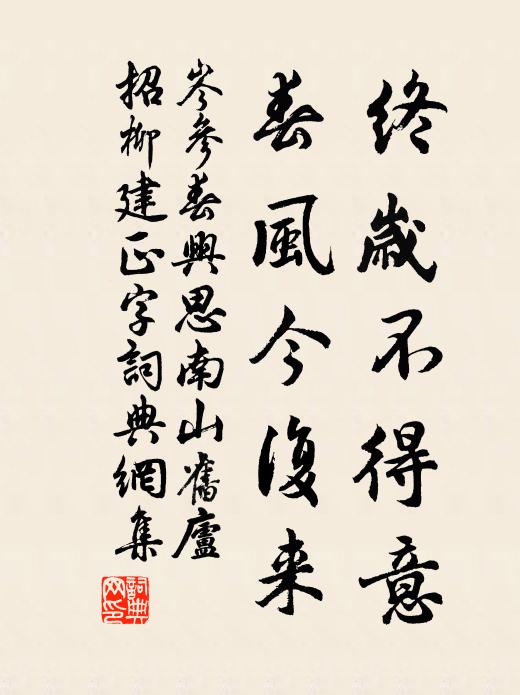 终歲不得意
春風今復来
岑參春興思南山舊廬
招柳建正字詞典網集
詞典
网印